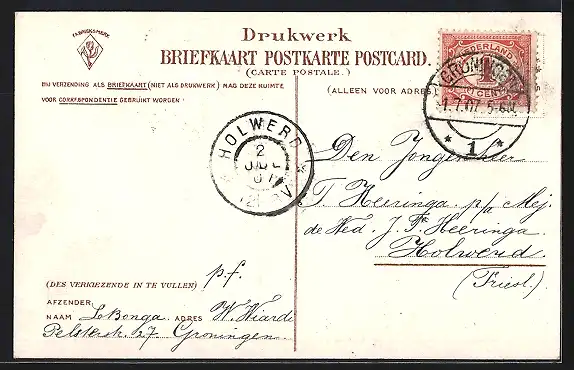 FABRIEKSMERK
Drukwerk
BRIEFKAART POSTKARTE POSTCARD.
(CARTE POSTALE.)
BIJ VERZENDING ALS BRIEFKAART (NIET ALS DRUKWERK) MAG DEZE RUIMTE
VOOR CORRESPONDENTIE GEBRUIKT WORDEN
(ALLEEN VOOR ADRES)
NEDERLAND
1
CENT
GRONINGEN
1.7.07 5-6N
1
HOLWERD
2
JUL
07
Den Jongenheer
T. Heeringa. p/a Mej.
de Wed. J. F. Heeringa.
Holwerd.
(Friesl.)
p.f.
(DES VERKIEZENDE IN TE VULLEN)
AFZENDER
NAAM ADRES W. Wiardi
27 Groningen